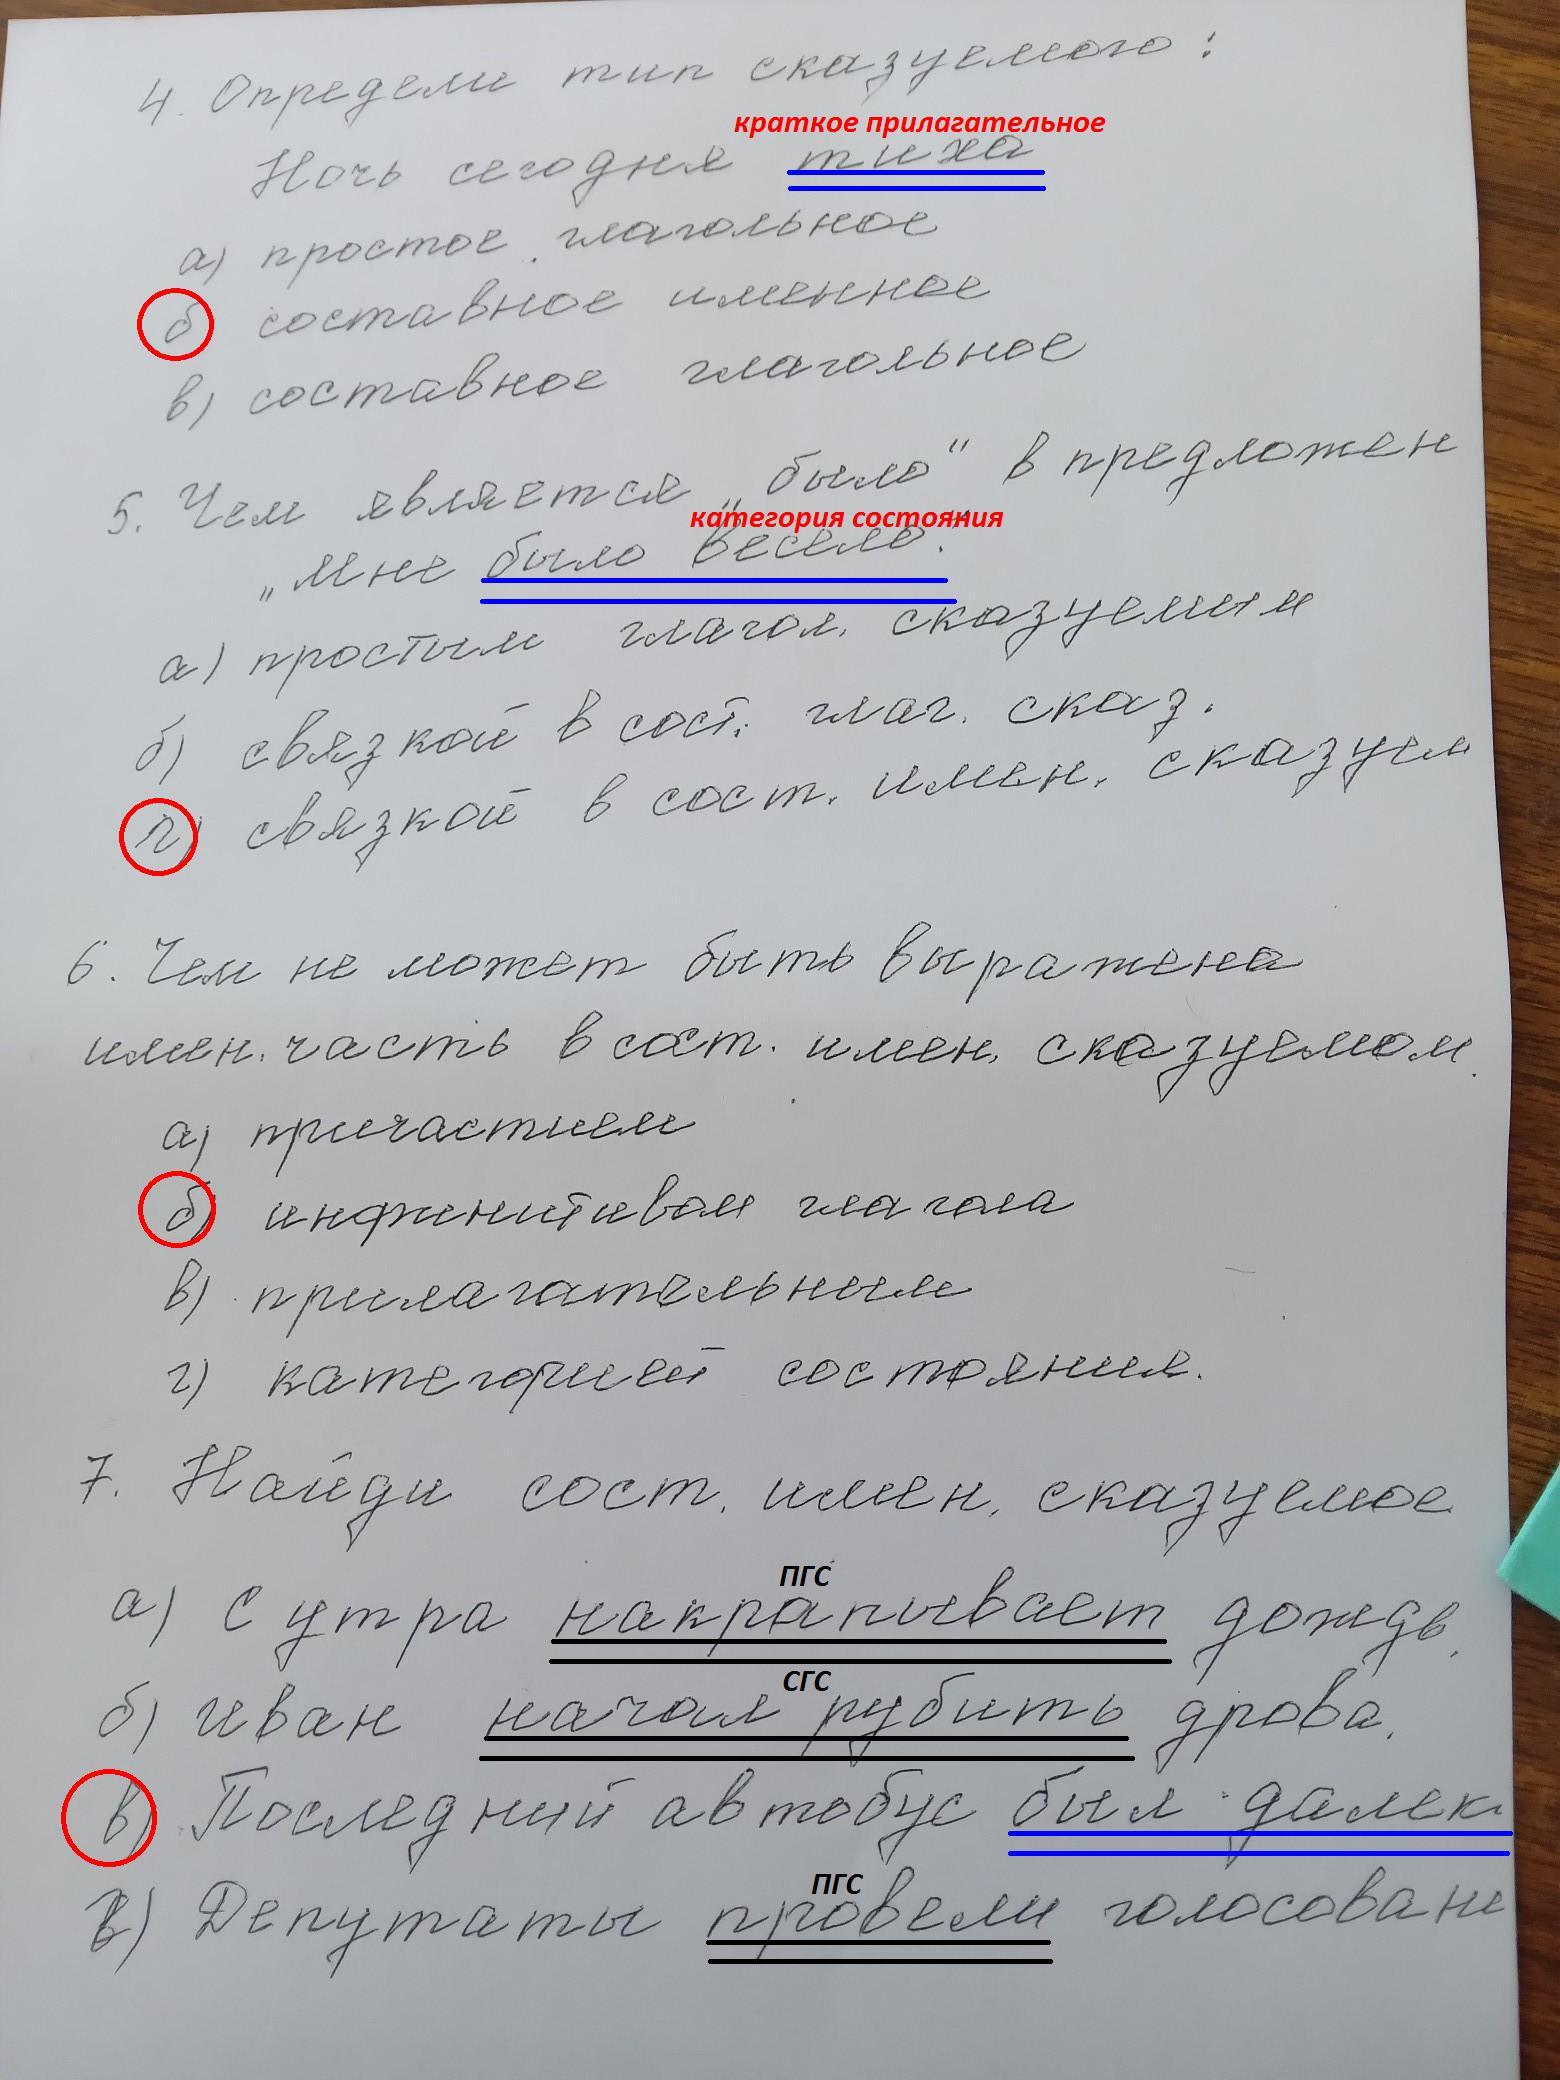 4. Определи тип сказуемого:
краткое прилагательное
Ночь сегодня тиха
а) простое глагольное
б составное именное
в) составное глагольное
5. Чем является „было" в предложен
категория состояния
„Мне было весело."
а) простым глагол. сказуемым
б) связкой в сост. глаг. сказ.
г) связкой в сост. имен. сказуем
6. Чем не может быть выражена
имен. часть в сост. имен. сказуемом.
а) причастием
б) инфинитивом глагола
в) прилагательным
г) категорией состояния.
7. Найди сост. имен. сказуемое
ПГС
а) С утра накрапывает дождь.
СГС
б) Иван начал рубить дрова.
в) Последний автобус был далек
ПГС
в) Депутаты провели голосован